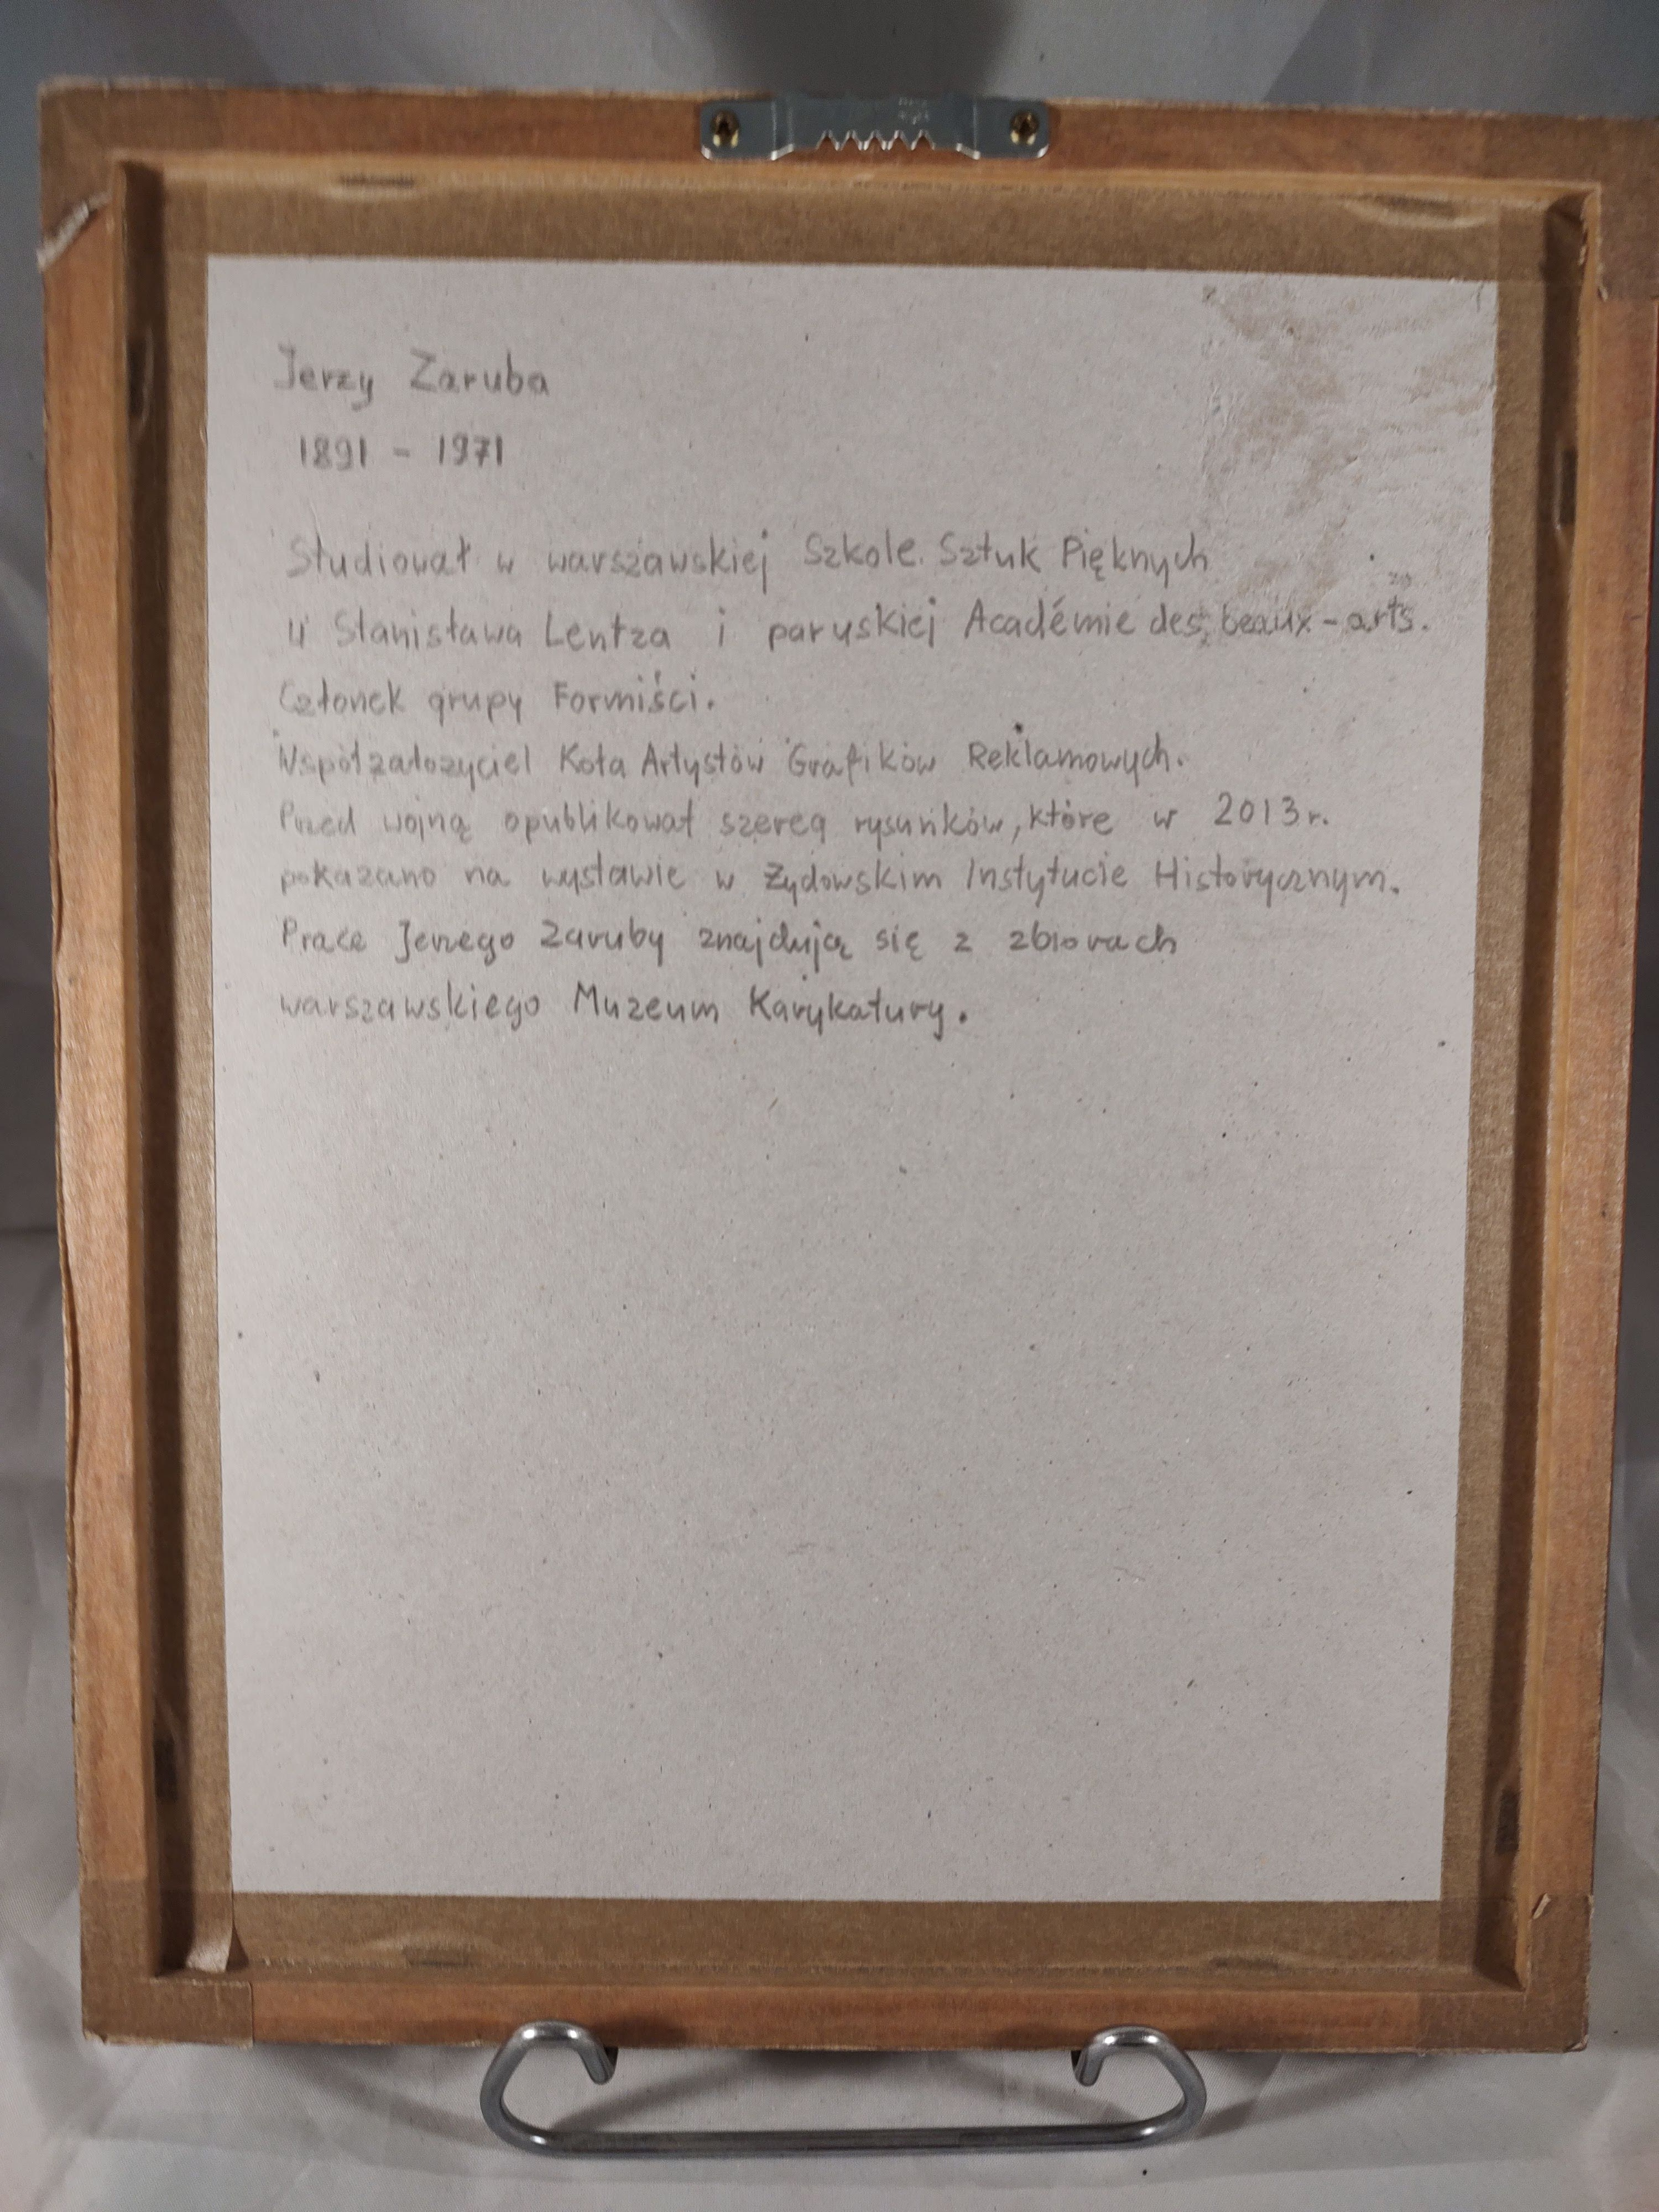 Jerzy Zaruba
1891 - 1971
Studiował w warszawskiej Szkole Sztuk Pięknych
u Stanisława Lentza i paryskiej Académie des beaux-arts.
Członek grupy Formiści.
Współzałożyciel Koła Artystów Grafików Reklamowych.
Przed wojną opublikował szereg rysunków, które w 2013 r.
pokazano na wystawie w Żydowskim Instytucie Historycznym.
Prace Jerzego Zaruby znajdują się z zbiorach
warszawskiego Muzeum Karykatury.